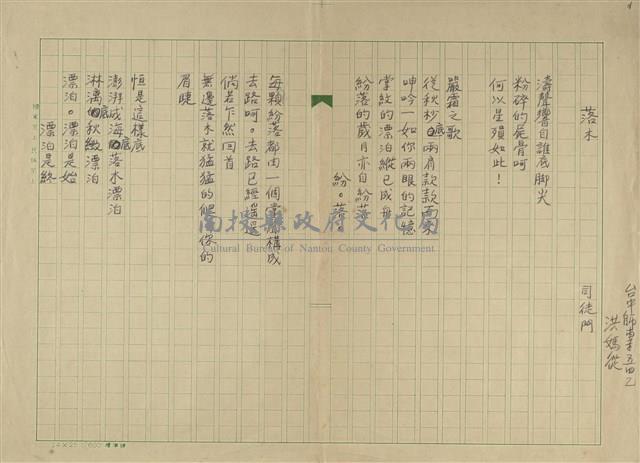 落木
司徒門
台中師專五四乙
洪媽從
濤聲響自誰底脚尖
粉碎的屍骨呵
何以星殞如此！
嚴霜之歌
從秋杪底兩肩款款而來
呻吟一如你兩眼的記憶
掌紋的漂泊縱已成舟
紛落的歲月亦自紛落
紛。落
每顆紛落都由一個掌構成
去路呵。去路已經遥遠
倘若乍然回首
無邊落木就猛猛的催你的
眉睫
恒是這樣底
澎湃成海底落木漂泊
淋漓底秋緻漂泊
漂泊。漂泊是始
漂泊是終
南投縣政府文化局
Cultural Bureau of Nantou County Government